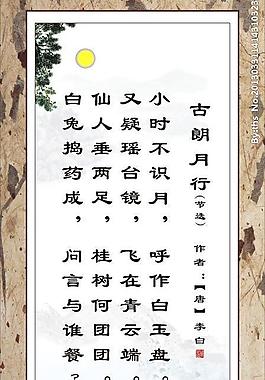 古朗月行（节选） 作者：【唐】李白
小时不识月，呼作白玉盘。
又疑瑶台镜，飞在青云端。
仙人垂两足，桂树何团团。
白兔捣药成，问言与谁餐？